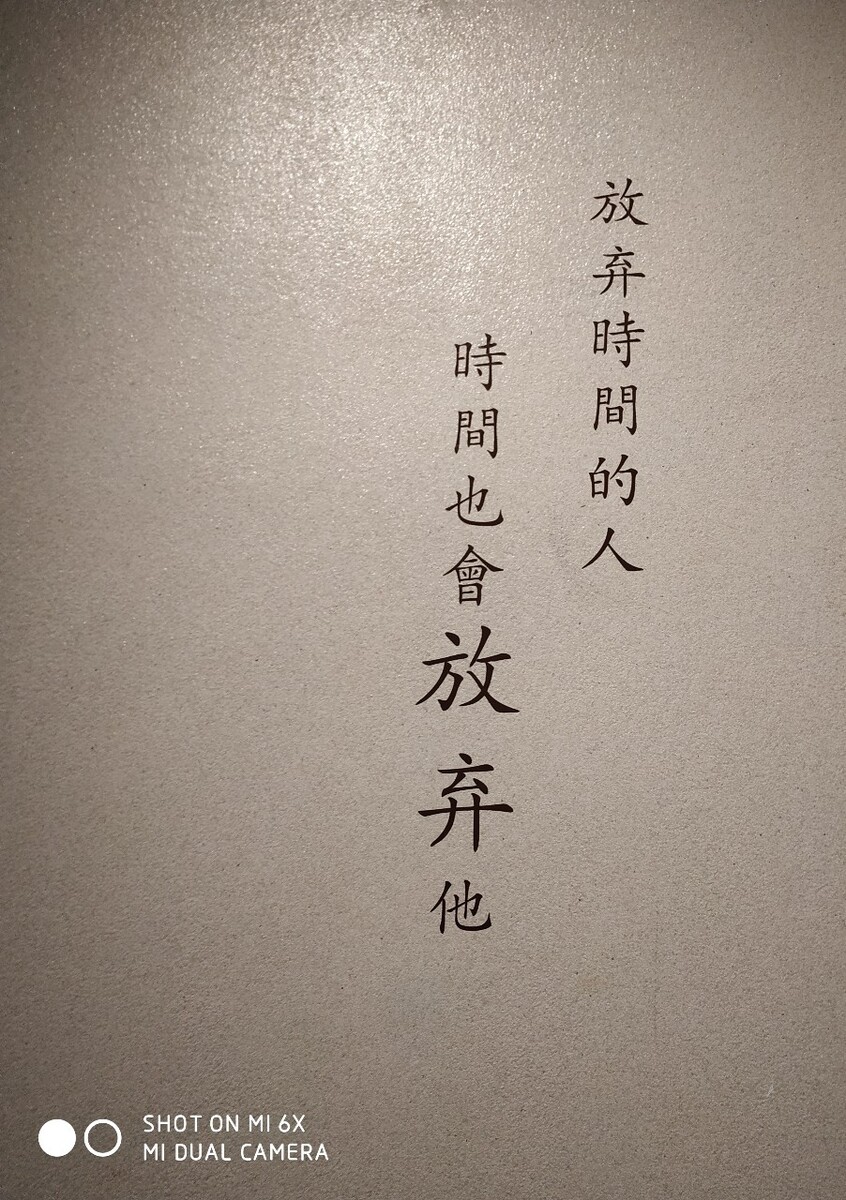 放弃時間的人
時間也會放弃他
SHOT ON MI 6X
MI DUAL CAMERA